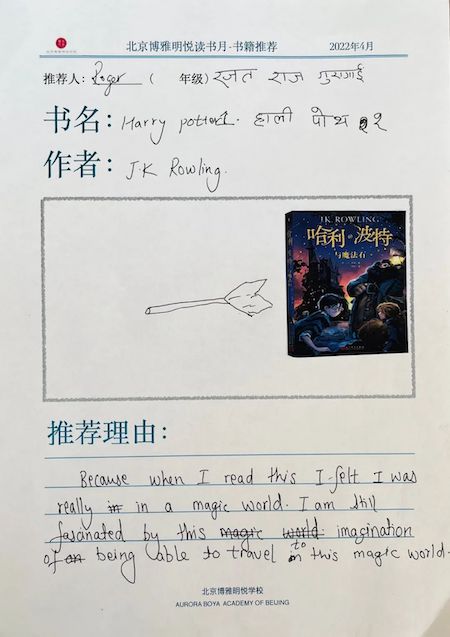 北京博雅明悦读书月·书籍推荐 2022年4月
推荐人: Roger ( 年级) रजत राज गुरागाई
书名: Harry potter1. हाली पौथ १
作者: J.K Rowling.
J.K. ROWLING
哈利·波特
与魔法石
推荐理由:
Because when I read this I felt I was
really in in a magic world. I am still
fasinated by this magic world imagination
of an being able to travel to in this magic world.
北京博雅明悦学校
AURORA BOYA ACADEMY OF BEIJING